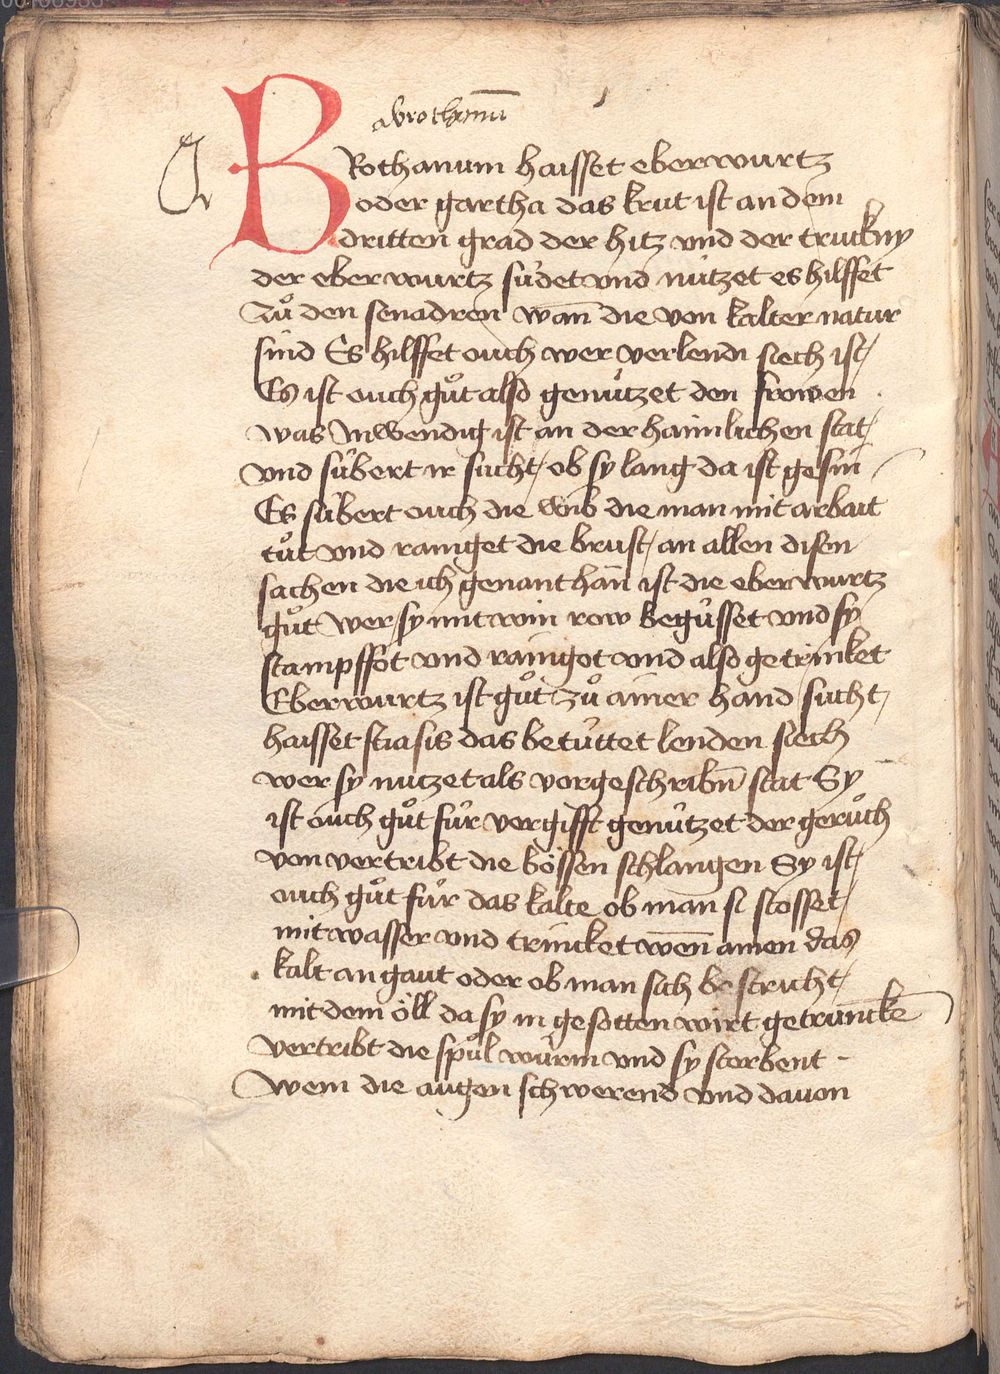 abrothanū
A
BRothanum haisset eberwurtz
oder gartha das krut ist an dem
dritten grad der hitz vnd der truckny
der eberwurtz su̍det vnd nu̍tzet es hilffet
zů den senadren wan̄ die von kalter natur
sind Es hilffet ouch wer verlendi siech ist /
Es ist ouch gůt also genu̍tzet den frowen
was Inwendig ist an der haimlichen stat /
vnd su̍bert ir sucht / ob sy lang da ist gesin /
Es su̍bert ouch die wib die man mit arbait
tůt vnd rainiget die brust / an allen disen
sachen die ich genant hān ist die eberwurtz
gůt wer sy mit win row begu̍sset vnd sy
stampffot vnd rainigot vnd also getrinket
Eberwurtz ist gůt zů ainer hand sucht /
haisset stiasis das betu̍ttet lenden siech
wer sy nutzet als vorgeschribn̄ stat Sy
ist ouch gůt fu̍r vergifft genu̍tzet der geruͦch
von vertribt die bössen schlangen Sy ist /
ouch gůt fu̍r das kalte ob man si stosset /
mit wasser vnd trincket wen̄ ainen das
kalt an gaut oder ob man sich bestricht /
mit dem öll da sy in gesotten wirt getrunckē
vertribt die spu̍l wu̍rm vnd sy sterbent -
Wem die augen schwerend vnd dauon